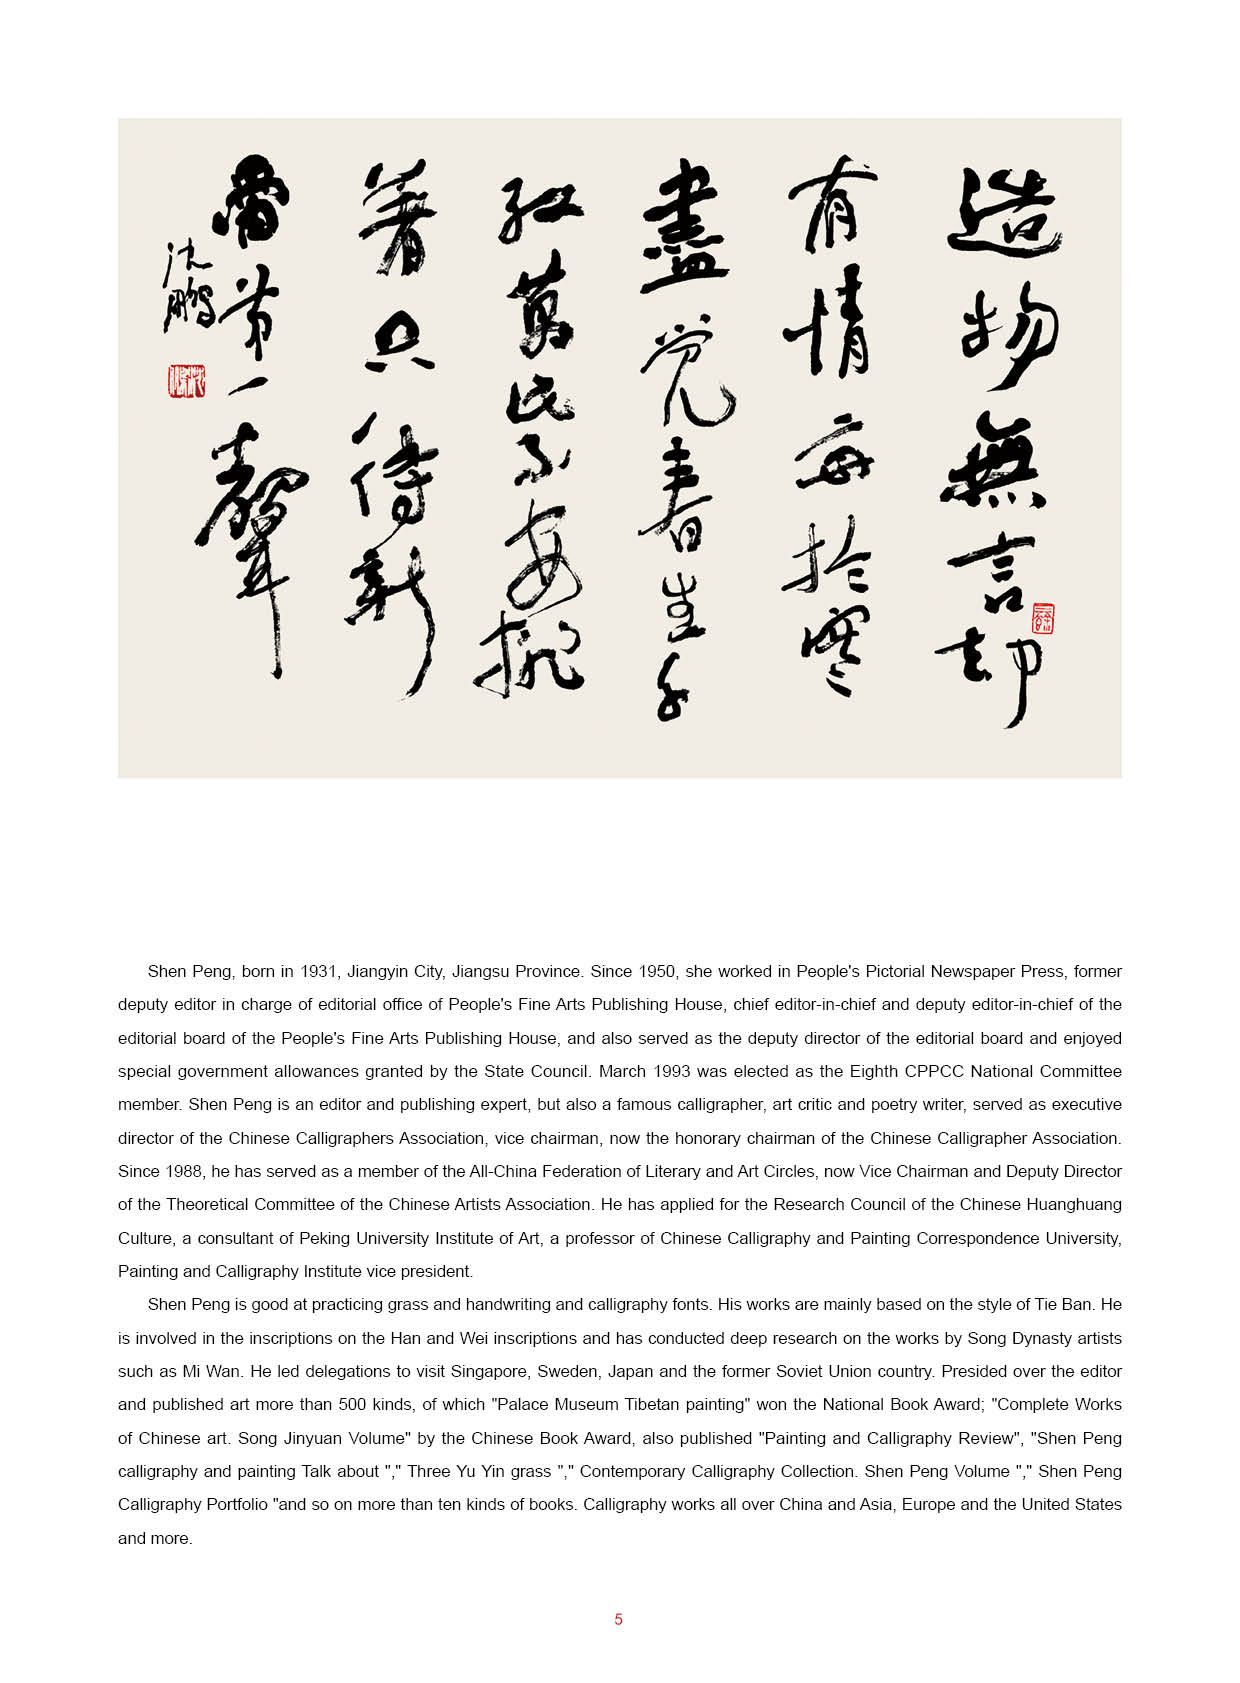 造物無言却
有情每於寒
盡觉春生千
紅萬紫安排
著只待新
雷第一聲
沈鵬
Shen Peng, born in 1931, Jiangyin City, Jiangsu Province. Since 1950, she worked in People's Pictorial Newspaper Press, former
deputy editor in charge of editorial office of People's Fine Arts Publishing House, chief editor-in-chief and deputy editor-in-chief of the
editorial board of the People's Fine Arts Publishing House, and also served as the deputy director of the editorial board and enjoyed
special government allowances granted by the State Council. March 1993 was elected as the Eighth CPPCC National Committee
member. Shen Peng is an editor and publishing expert, but also a famous calligrapher, art critic and poetry writer, served as executive
director of the Chinese Calligraphers Association, vice chairman, now the honorary chairman of the Chinese Calligrapher Association.
Since 1988, he has served as a member of the All-China Federation of Literary and Art Circles, now Vice Chairman and Deputy Director
of the Theoretical Committee of the Chinese Artists Association. He has applied for the Research Council of the Chinese Huanghuang
Culture, a consultant of Peking University Institute of Art, a professor of Chinese Calligraphy and Painting Correspondence University,
Painting and Calligraphy Institute vice president.
Shen Peng is good at practicing grass and handwriting and calligraphy fonts. His works are mainly based on the style of Tie Ban. He
is involved in the inscriptions on the Han and Wei inscriptions and has conducted deep research on the works by Song Dynasty artists
such as Mi Wan. He led delegations to visit Singapore, Sweden, Japan and the former Soviet Union country. Presided over the editor
and published art more than 500 kinds, of which "Palace Museum Tibetan painting" won the National Book Award; "Complete Works
of Chinese art. Song Jinyuan Volume" by the Chinese Book Award, also published "Painting and Calligraphy Review", "Shen Peng
calligraphy and painting Talk about "," Three Yu Yin grass "," Contemporary Calligraphy Collection. Shen Peng Volume "," Shen Peng
Calligraphy Portfolio "and so on more than ten kinds of books. Calligraphy works all over China and Asia, Europe and the United States
and more.
5